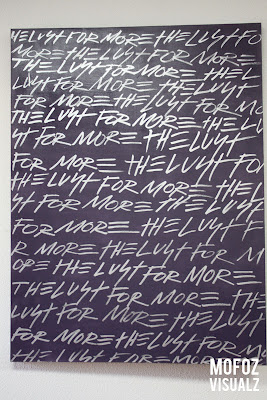 HE LUST FOR MORE THE LUST FO
MORE THE LUST FOR MORE THE
LUST FOR MORE THE LUST FO
FOR MORE THE LUST FOR MO
THE LUST FOR MORE THE LU
ST FOR MORE THE LUST
FOR MORE THE LUST FOR
THE LUST FOR MORE THE LU
ST FOR MORE THE LUST FOR
FOR MORE THE LUST FO
R MORE THE LUST FOR M
ORE THE LUST FOR MORE
THE LUST FOR MORE THE
LUST FOR MORE THE LUST
THE LUST FOR MORE THE
MOFOZ
VISUALZ